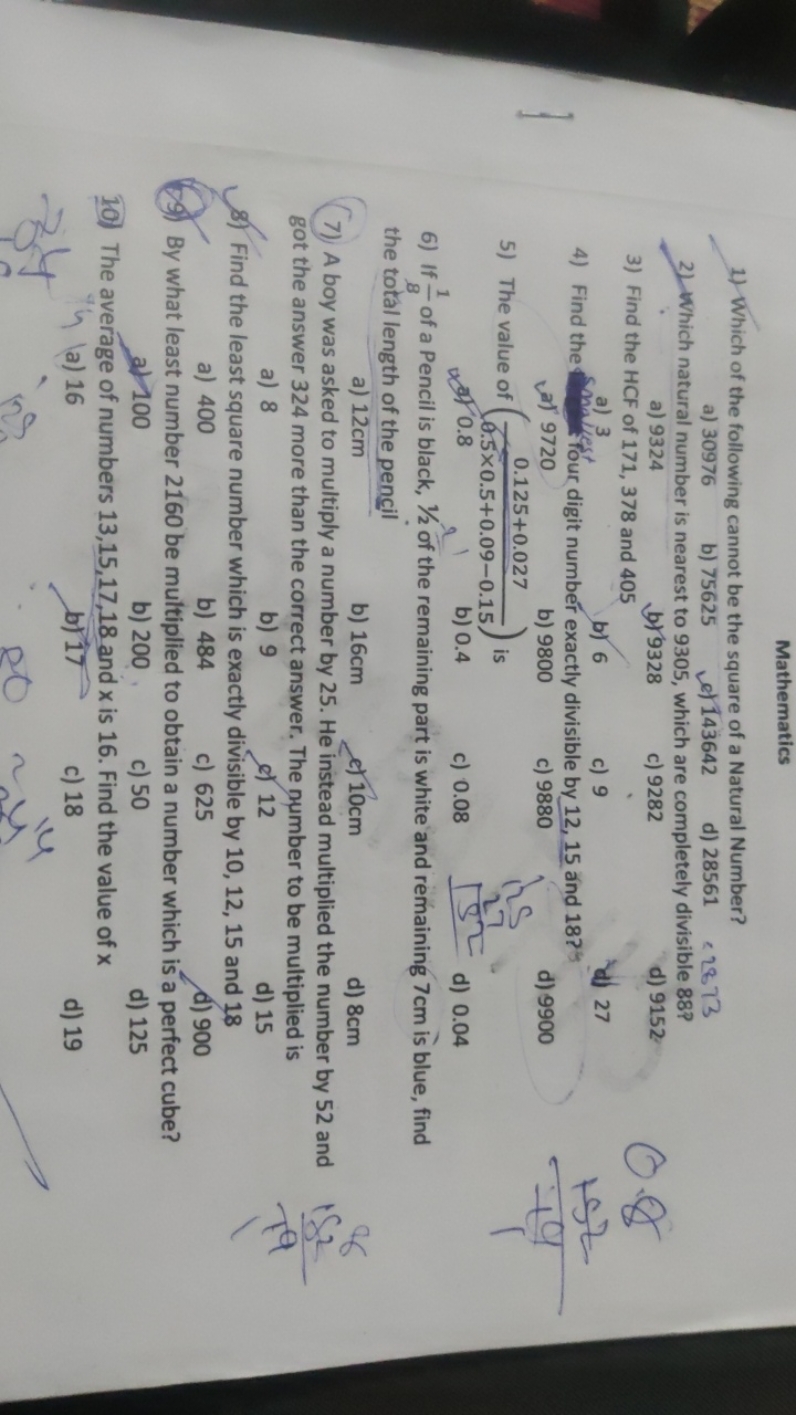 Mathematics
1) Which of the following cannot be the square of a Natural Number?
a) 30976 b) 75625 c) 143642 d) 28561
2) Which natural number is nearest to 9305, which are completely divisible 88?
a) 9324 b) 9328 c) 9282 d) 9152
3) Find the HCF of 171, 378 and 405
a) 3 b) 6 c) 9 d) 27
4) Find the Smallest four digit number exactly divisible by 12, 15 and 18?
a) 9720 b) 9800 c) 9880 d) 9900
5) The value of (0.125+0.027 / 0.5×0.5+0.09−0.15) is
a) 0.8 b) 0.4 c) 0.08 d) 0.04
6) If 1/8 of a Pencil is black, ½ of the remaining part is white and remaining 7cm is blue, find
the total length of the pencil
a) 12cm b) 16cm c) 10cm d) 8cm
7) A boy was asked to multiply a number by 25. He instead multiplied the number by 52 and
got the answer 324 more than the correct answer. The number to be multiplied is
a) 8 b) 9 c) 12 d) 15
8) Find the least square number which is exactly divisible by 10, 12, 15 and 18
a) 400 b) 484 c) 625 d) 900
9) By what least number 2160 be multiplied to obtain a number which is a perfect cube?
a) 100 b) 200 c) 50 d) 125
10) The average of numbers 13,15,17,18 and x is 16. Find the value of x
a) 16 b) 17 c) 18 d) 19